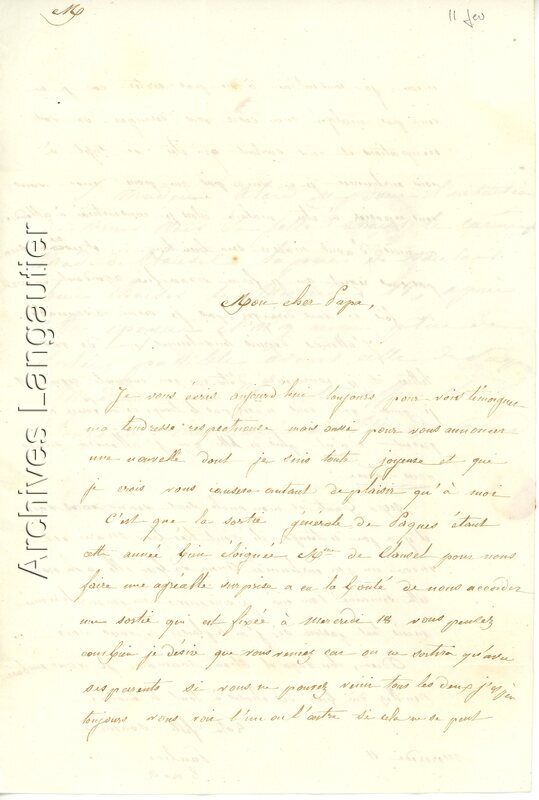 11 fev
Archives Langautier
Mon cher Papa,
Je vous écris aujourd'hui toujours pour vous témoigner
ma tendresse respectueuse mais aussi pour vous annoncer
une nouvelle dont je suis toute joyeuse et que
je crois vous causera autant de plaisir qu'à moi
C'est que la sortie générale de Paques étant
cette année bien éloignée Mme de Clausel pour nous
faire une agréable surprise a eu la bonté de nous accorder
une sortie qui est fixée à mercredi 18 vous pensez
combien je désire que vous veniez car on ne sortira qu'avec
ses parents si vous ne pouvez venir tous les deux
toujours vous voir l'un ou l'autre si cela ne se peut